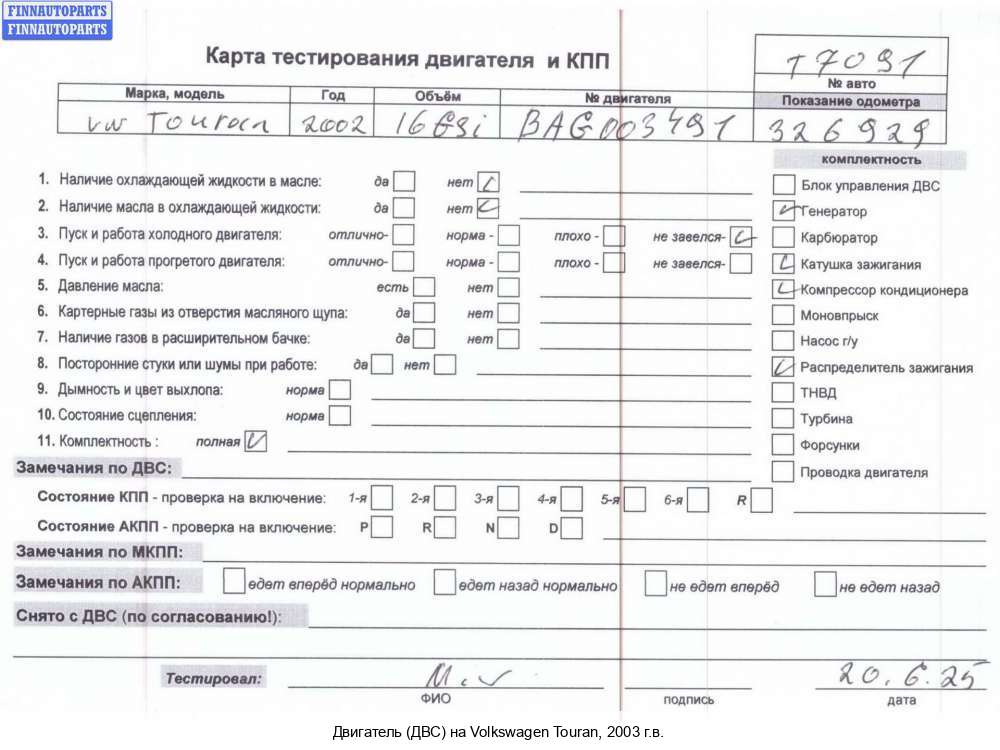 FINNAUTOPARTS
FINNAUTOPARTS
Карта тестирования двигателя и КПП
T7091
№ авто
Марка, модель Год Объём № двигателя Показание одометра
VW Touran 2002 16GSi BAG003491 326929
комплектность
1. Наличие охлаждающей жидкости в масле: да нет
Блок управления ДВС
2. Наличие масла в охлаждающей жидкости: да нет
Генератор
3. Пуск и работа холодного двигателя: отлично- норма - плохо - не завелся-
Карбюратор
4. Пуск и работа прогретого двигателя: отлично- норма - плохо - не завелся-
Катушка зажигания
5. Давление масла: есть нет
Компрессор кондиционера
6. Картерные газы из отверстия масляного щупа: да нет
Моновпрыск
7. Наличие газов в расширительном бачке: да нет
Насос г/у
8. Посторонние стуки или шумы при работе: да нет
Распределитель зажигания
9. Дымность и цвет выхлопа: норма
ТНВД
10. Состояние сцепления: норма
Турбина
11. Комплектность : полная
Форсунки
Замечания по ДВС:
Проводка двигателя
Состояние КПП - проверка на включение: 1-я 2-я 3-я 4-я 5-я 6-я R
Состояние АКПП - проверка на включение: P R N D
Замечания по МКПП:
Замечания по АКПП: едет вперёд нормально едет назад нормально не едет вперёд не едет назад
Снято с ДВС (по согласованию!):
Тестировал: 20.6.25
ФИО подпись дата
Двигатель (ДВС) на Volkswagen Touran, 2003 г.в.